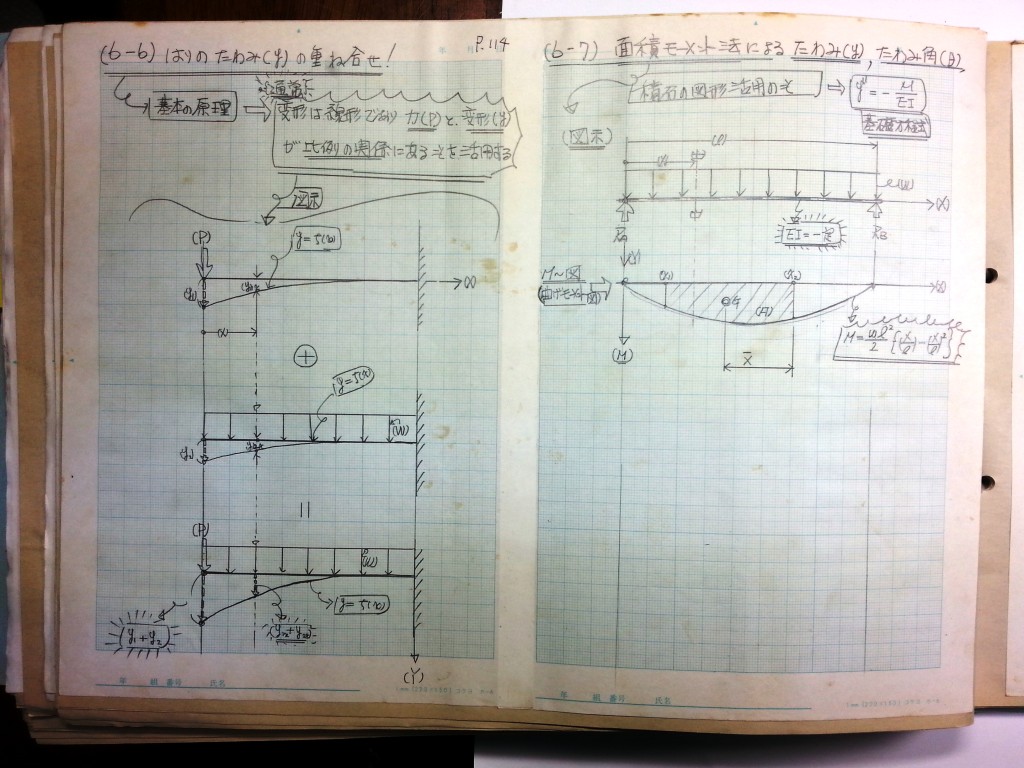 (6-6) はりの たわみ(y) の重ね合せ!
P.114
基本の原理
通常
変形は線形であり 力(P)と、変形(y)
が 比例の関係にある を活用する
図示
(P)
y=f(x)
(x)
(x)
(y₁)
y=f(x)
(w)
(y₂)
(P)
(w)
y=f(x)
(y₁+y₂)
(Y)
年 組 番号 氏名
(6-7) 面積モーメント法による たわみ(y), たわみ角(θ)
積分の図形 活用の
y″=-M/EI
基礎方程式
(図示)
(l)
(x)
(w)
(x)
EI=一定
R_B
(y)
M~図
(曲げモーメント図)
(x₁)
(x₂)
G
(A)
(x)
(M)
x̄
M=wl²/2{(x/l)-(x/l)²}
年 組 番号 氏名